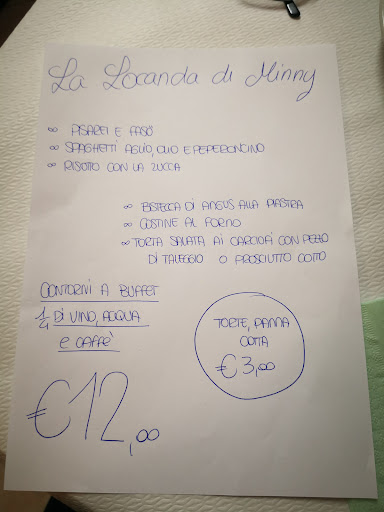 La Locanda di Minny
∞ PISAREI E FASÖ
∞ SPAGHETTI AGLIO, OLIO E PEPERONCINO
∞ RISOTTO CON LA ZUCCA
∞ BISTECCA DI ANGUS ALLA PIASTRA
∞ COSTINE AL FORNO
∞ TORTA SALATA AI CARCIOFI CON
DI TALEGGIO O PROSCIUTTO COTTO
CONTORNI A BUFFET
1/4 DI VINO, ACQUA
E CAFFÈ
€12,00
TORTE, PANNA
COTTA
€3,00